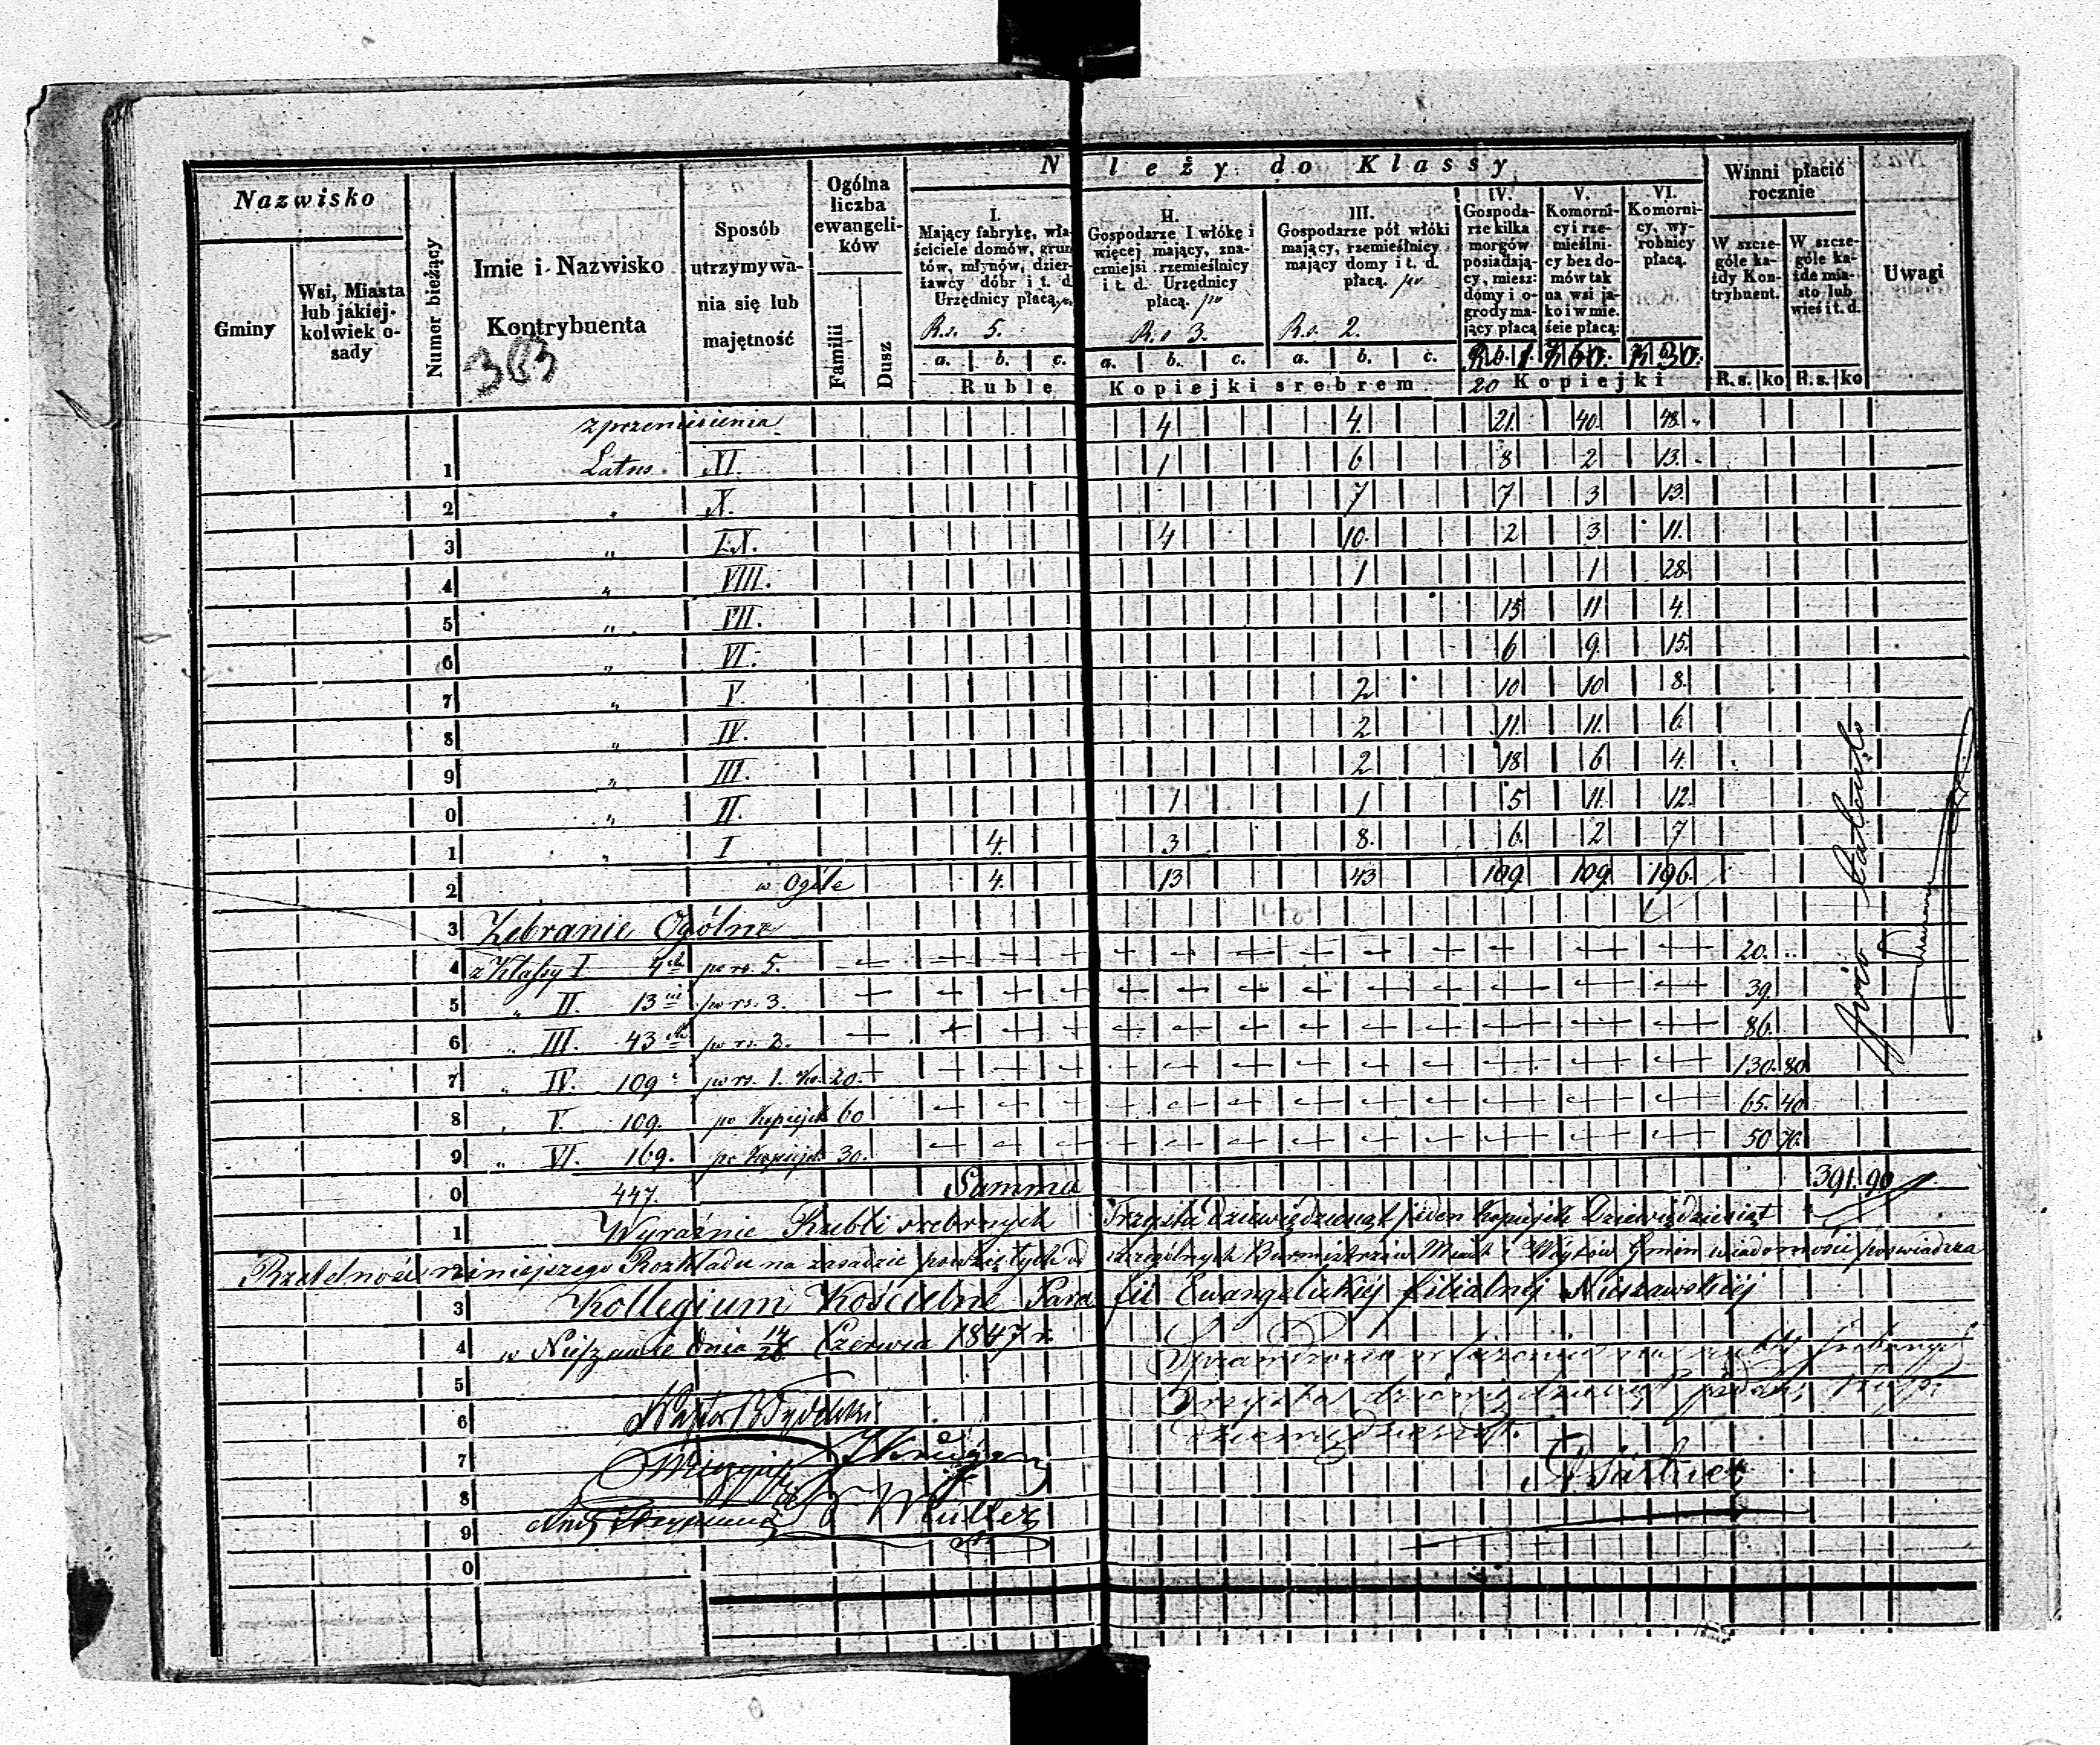 Nazwisko
Gminy
Wsi, Miasta
lub jakiej-
kolwiek o-
sady
Numer bieżący
Imie i Nazwisko
Kontrybuenta
383
Sposób
utrzymywa-
nia się lub
majętność
Ogólna
liczba
ewangeli-
ków
Familii
Dusz
N leży do Klassy
I.
Mający fabrykę, wła-
ściciele domów, grun
tów, młynów, dzier-
żawcy dóbr i t. d.
Urzędnicy płacą po
R.s. 5.
a. b. c.
II.
Gospodarze I włókę i
więcej mający, zna-
czniejsi rzemieślnicy
i t. d. Urzędnicy
płacą. po
R.s 3.
a. b. c.
III.
Gospodarze pół włóki
mający, rzemieślnicy
mający domy i t. d.
płacą. po
R.s. 2.
a. b. c.
IV.
Gospoda-
rze kilka
morgów
posiadają-
cy, miesz:
domy i o-
grody ma-
jący płacą
R.s. 1.
20
V.
Komorni-
cy i rze-
mieślni-
cy bez do-
mów tak
na wsi ja-
ko i w mie.
ście płacą:
k 60.
VI.
Komorni-
cy, wy-
robnicy
płacą.
k 30.
Ruble Kopiejki srebrem Kopiejki
Winni płacić
rocznie
W szcze-
góle ka-
żdy Kon-
trybuent.
W szcze-
góle ka-
żde mia-
sto lub
wieś i t. d.
R.s. ko R.s. ko
Uwagi
z przeniesienia 4 4. 21. 40. 48. „
1 Latus XI. 1 6 8 2 13.
2 „ X. 7 7 3 13.
3 „ IX. 4 10. 2 3 11.
4 „ VIII. 1 1 28.
5 „ VII. 15 11 4.
6 „ VI. 6 9. 15.
7 „ V. 2 10 10 8.
8 „ IV. 2 11. 11. 6.
9 „ III. 2 18 6 4.
0 „ II. 1 1 5 11. 12.
1 „ I 4. 3 8. 6. 2 7
2 w Ogóle 4. 13 43 109 109 196.
3 Zebranie Ogólne
4 z Klassy I 4ch po rs. 5. 20. „
5 „ II. 13 po rs. 3. 39.
6 „ III. 43 po rs. 2. 86.
7 „ IV. 109 po rs. 1. ko. 20. 130. 80
8 „ V. 109. po Kopiejek 60 65. 40
9 „ VI. 169. po Kopiejek 30. 50 70.
0 447. Summa 391. 90
1 Wyraźnie Rubli srebrnych Trzysta dziewięćdziesiąt jeden kopiejek Dziewięćdziesiąt
Rzetelność niniejszego Rozkładu na zasadzie powziętych od szczególnych Burmistrzów Miast i Wójtów Gmin wiadomości poświadcza
3 Kollegium Kościelne Parafii Ewangelickiej filialnej Nieszawskiej
4 w Nieszawie dnia 14/26 Czerwca 1847 r.
5
6 Pastor
7 Krüger
8 Müller
9
0
Trzysta dziewięćdziesiąt jeden, kop.
dziewięćdziesiąt.